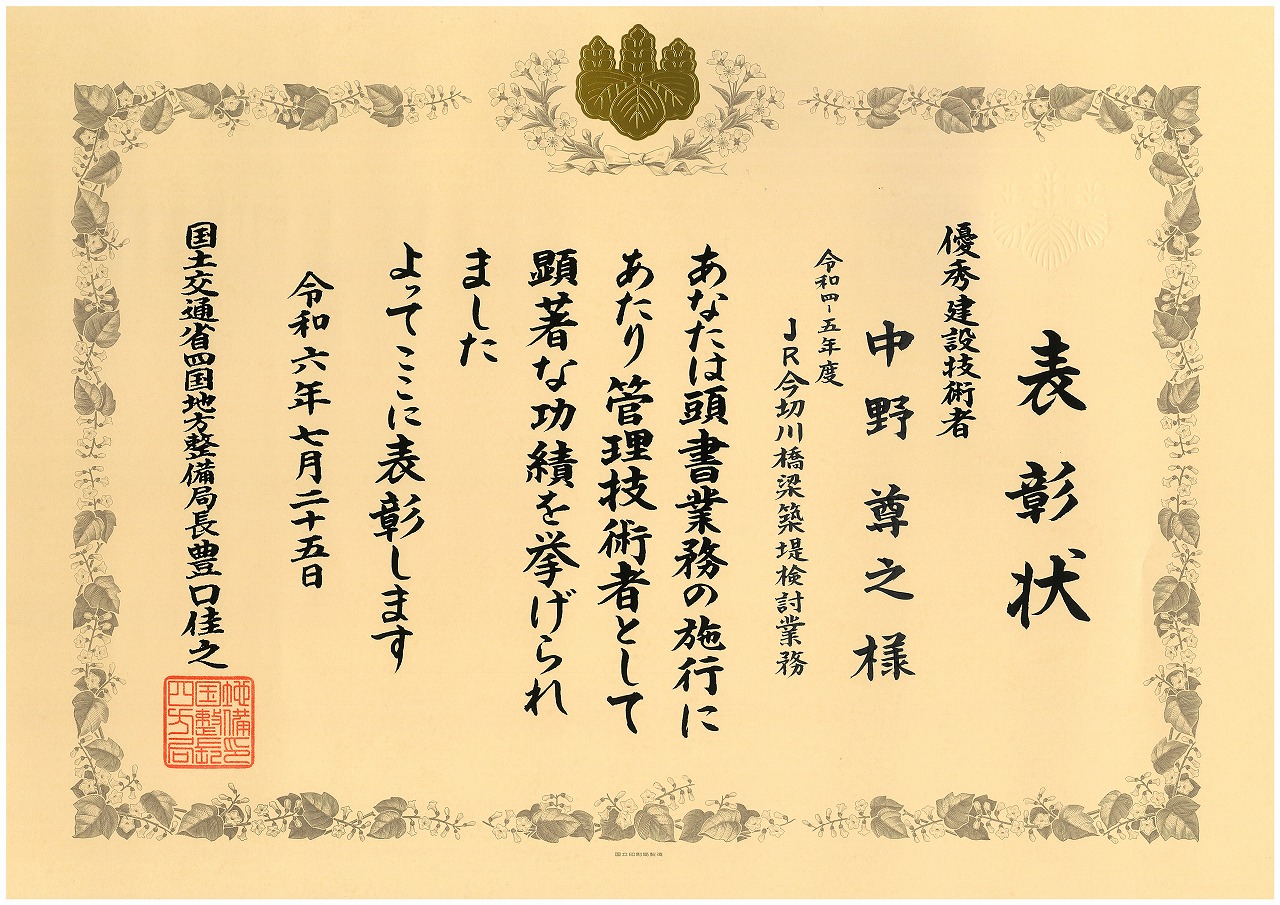 表彰状
優秀建設技術者
中野尊之様
令和四-五年度
JR今切川橋梁築堤検討業務
あなたは頭書業務の施行に
あたり管理技術者として
顕著な功績を挙げられ
ました
よってここに表彰します
令和六年七月二十五日
国土交通省四国地方整備局長豊口佳之
四国地方整備局長印
国立印刷局製造